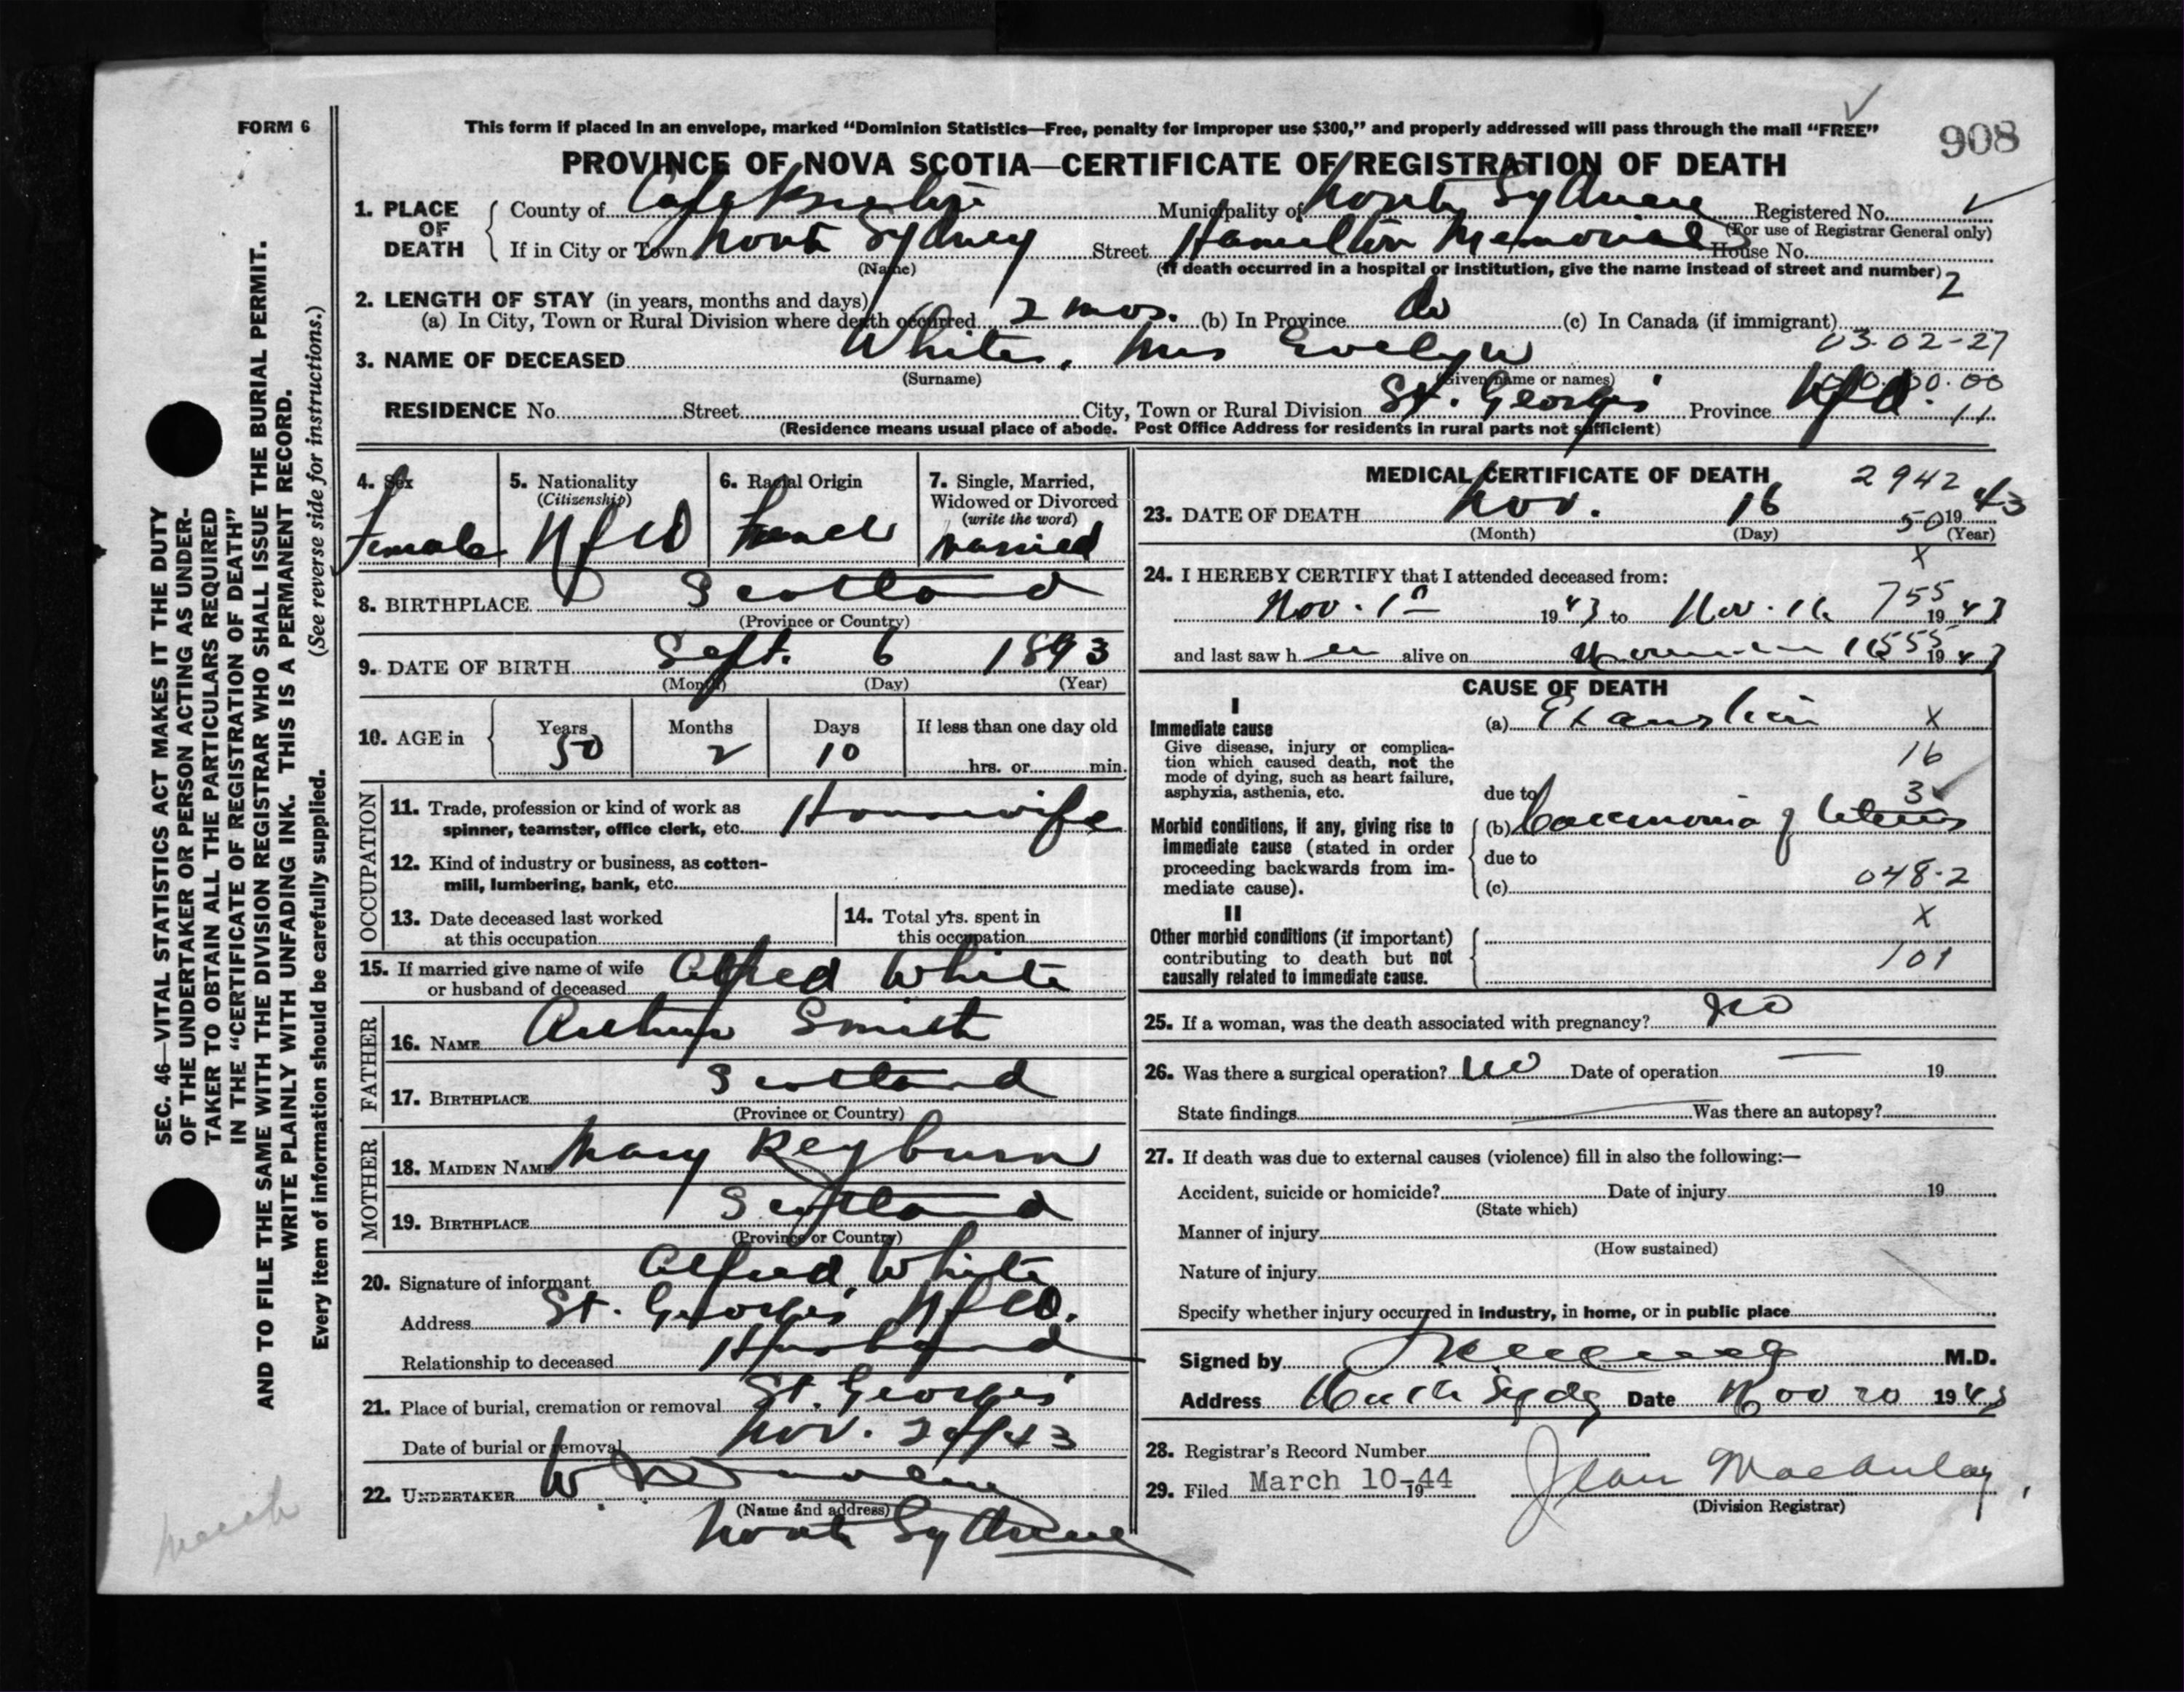 FORM 6
This form if placed in an envelope, marked "Dominion Statistics—Free, penalty for improper use $300," and properly addressed will pass through the mail "FREE"
908
PROVINCE OF NOVA SCOTIA—CERTIFICATE OF REGISTRATION OF DEATH
1. PLACE OF DEATH
County of Cape Breton Municipality of North Sydney Registered No.
(For use of Registrar General only)
If in City or Town North Sydney Street Hamilton Memorial House No.
(Name) (If death occurred in a hospital or institution, give the name instead of street and number)
2
2. LENGTH OF STAY (in years, months and days)
(a) In City, Town or Rural Division where death occurred 2 mos. (b) In Province do (c) In Canada (if immigrant)
03-02-27
3. NAME OF DECEASED White, Mrs Evelyn
(Surname) (Given name or names)
RESIDENCE No. Street City, Town or Rural Division St. Georges Province Nfld. 11
(Residence means usual place of abode. Post Office Address for residents in rural parts not sufficient)
4. Sex Female
5. Nationality (Citizenship) Nfld
6. Racial Origin French
7. Single, Married, Widowed or Divorced (write the word) married
8. BIRTHPLACE Scotland
(Province or Country)
9. DATE OF BIRTH Sept. 6 1893
(Month) (Day) (Year)
10. AGE in Years 50 Months 2 Days 10 If less than one day old
hrs. or min.
OCCUPATION
11. Trade, profession or kind of work as
spinner, teamster, office clerk, etc. Housewife
12. Kind of industry or business, as cotton-
mill, lumbering, bank, etc.
13. Date deceased last worked
at this occupation
14. Total yrs. spent in
this occupation
15. If married give name of wife
or husband of deceased Alfred White
FATHER
16. NAME Arthur Smith
17. BIRTHPLACE Scotland
(Province or Country)
MOTHER
18. MAIDEN NAME Mary Reyburn
19. BIRTHPLACE Scotland
(Province or Country)
20. Signature of informant Alfred White
Address St. Georges Nfld.
Relationship to deceased Husband
21. Place of burial, cremation or removal St. Georges
Date of burial or removal Nov. /43
22. UNDERTAKER W.
(Name and address)
North Sydney
MEDICAL CERTIFICATE OF DEATH 2942
23. DATE OF DEATH Nov. 16 50 19 43
(Month) (Day) (Year)
X
24. I HEREBY CERTIFY that I attended deceased from:
Nov. 1st 1943 to Nov. 16 755 1943
and last saw her alive on 1943
CAUSE OF DEATH
I
Immediate cause
Give disease, injury or complica-
tion which caused death, not the
mode of dying, such as heart failure,
asphyxia, asthenia, etc.
(a) Exhaustion X
16
due to 3
Morbid conditions, if any, giving rise to
immediate cause (stated in order
proceeding backwards from im-
mediate cause).
(b) Carcinoma of Uterus
due to
(c) 048-2
II
X
Other morbid conditions (if important)
contributing to death but not
causally related to immediate cause.
101
25. If a woman, was the death associated with pregnancy? No
26. Was there a surgical operation? No Date of operation — 19
State findings Was there an autopsy?
27. If death was due to external causes (violence) fill in also the following:—
Accident, suicide or homicide? Date of injury 19
(State which)
Manner of injury
(How sustained)
Nature of injury
Specify whether injury occurred in industry, in home, or in public place
Signed by M.D.
Address North Sydney Date Nov 20 1943
28. Registrar's Record Number
29. Filed March 10-1944 Jean Macaulay
(Division Registrar)
SEC. 46—VITAL STATISTICS ACT MAKES IT THE DUTY
OF THE UNDERTAKER OR PERSON ACTING AS UNDER-
TAKER TO OBTAIN ALL THE PARTICULARS REQUIRED
IN THE "CERTIFICATE OF REGISTRATION OF DEATH"
AND TO FILE THE SAME WITH THE DIVISION REGISTRAR WHO SHALL ISSUE THE BURIAL PERMIT.
WRITE PLAINLY WITH UNFADING INK. THIS IS A PERMANENT RECORD.
Every item of information should be carefully supplied. (See reverse side for instructions.)
March